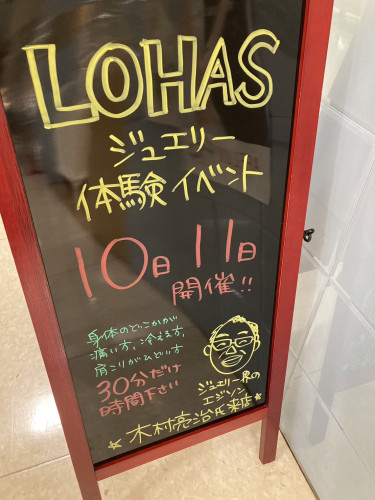 LOHAS
ジュエリー
体験イベント
10日 11日
開催!!
身体のどこかが
痛い方、冷える方、
肩こりがひどい方
30分だけ
時間下さい
ジュエリー界の
エジソン
★木村亮治氏来店★